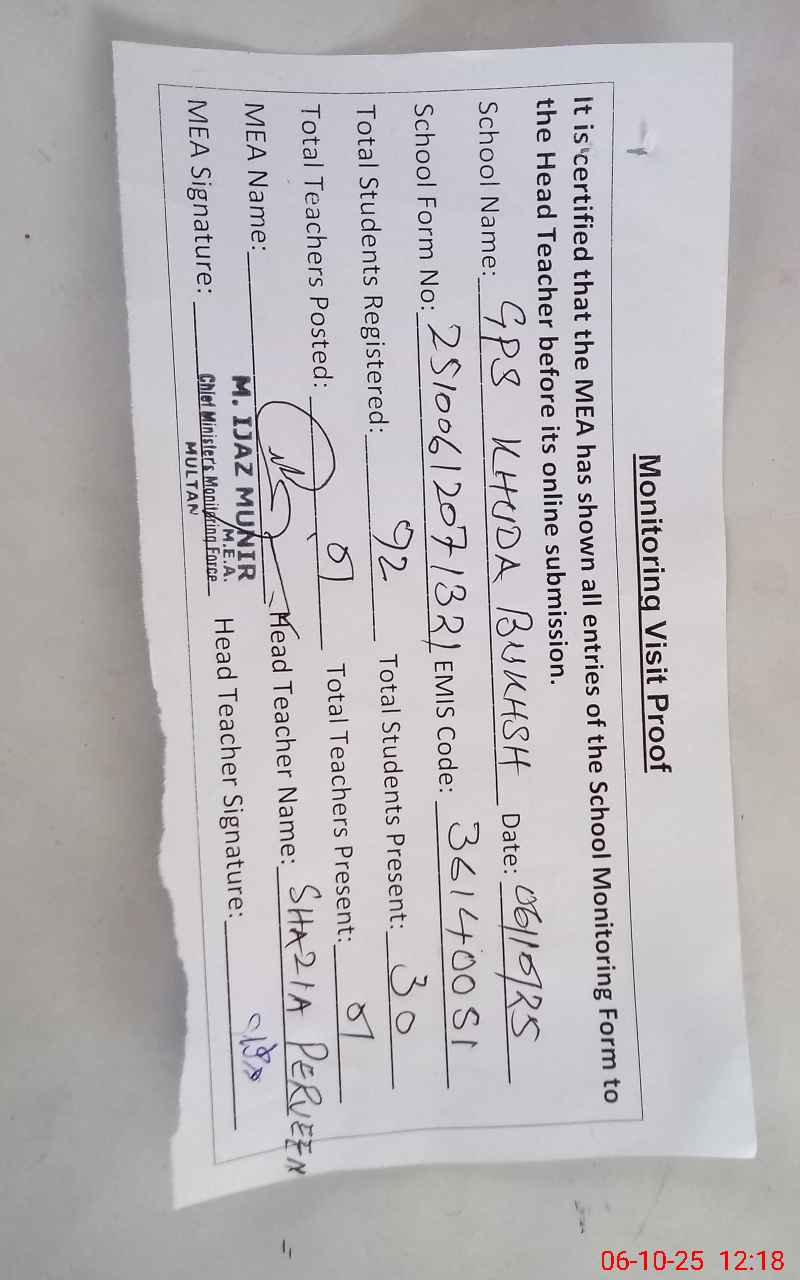 Monitoring Visit Proof
It is certified that the MEA has shown all entries of the School Monitoring Form to
the Head Teacher before its online submission.
School Name: GPS KHUDA BUKHSH Date: 06/10/25
School Form No: 25100612071321 EMIS Code: 36140051
Total Students Registered: 92 Total Students Present: 30
Total Teachers Posted: 01 Total Teachers Present: 01
MEA Name: Head Teacher Name: SHAZIA PERVEEN
M. IJAZ MUNIR
M.E.A.
MEA Signature: Chief Minister's Monitoring Force Head Teacher Signature:
MULTAN
06-10-25 12:18